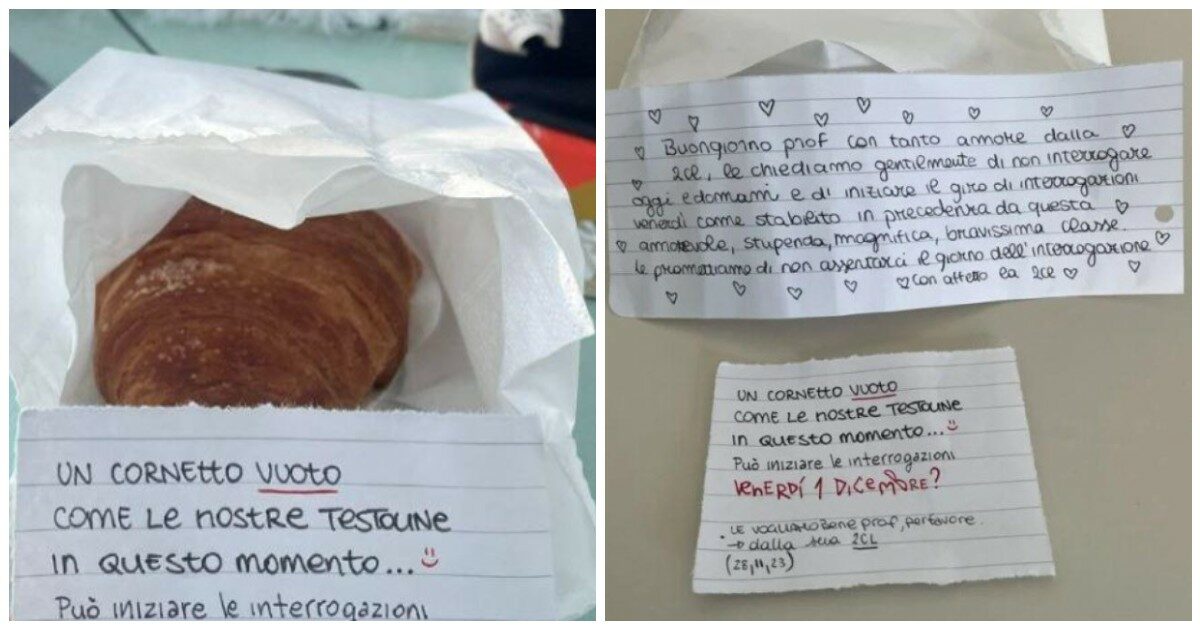 UN CORNETTO VUOTO
COME LE NOSTRE TESTOLINE
IN QUESTO MOMENTO...
Può INIZIARE le INTERROGAZIONI
Buongiorno prof con tanto amore dalla
2CE, le chiediamo gentilmente di non interrogare
oggi e domani e di iniziare il giro di interrogazioni
venerdì come stabilito in precedenza da questa
amorevole, stupenda, magnifica, bravissima classe.
le promettiamo di non assentarci il giorno dell'interrogazione
Con affetto la 2CE
UN CORNETTO VUOTO
COME LE NOSTRE TESTOLINE
IN QUESTO MOMENTO...
Può INIZIARE le INTERROGAZIONI
VENERDÍ 1 DICEMBRE?
• LE VOGLIAMO BENE prof, per favore.
→ dalla sua 2CL
(28,11,23)